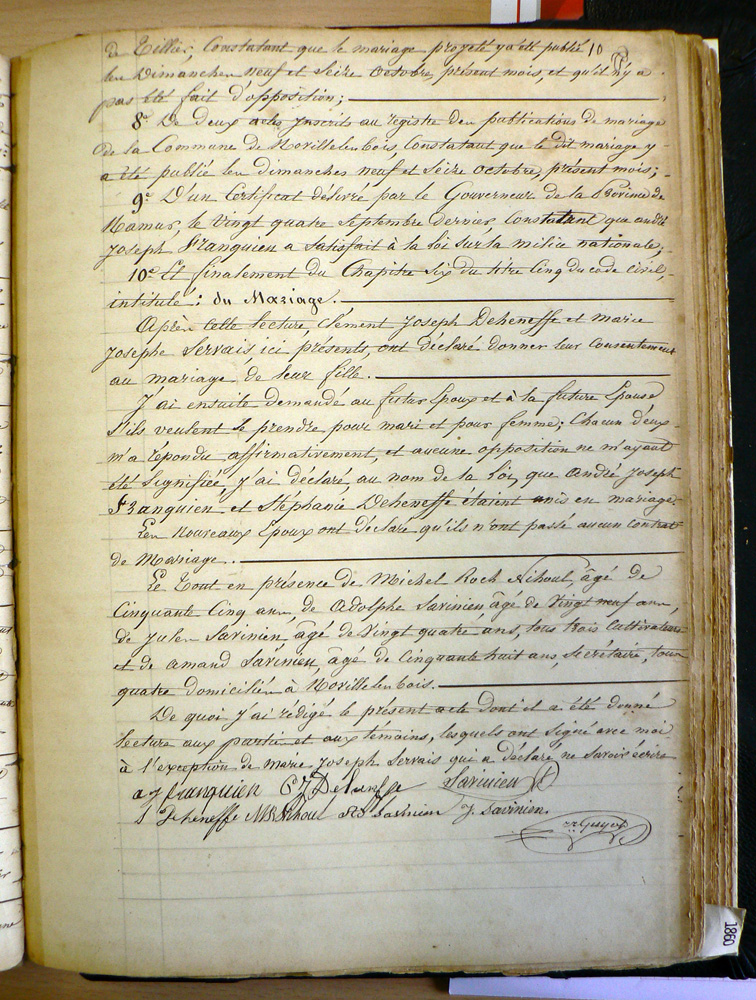 de Tillier, Constatant que le mariage projeté y a été publié 10
les Dimanches neuf et Seize Octobre, présent mois, et qu'il n'y a
pas été fait d'opposition;
8° De deux actes Inscrits au registre des publications de mariage
de la Commune de Novillelesbois, Constatant que le dit mariage y
a été publié les dimanches neuf et Seize Octobre, présent mois;
9° D'un Certificat délivré par le Gouverneur de la Province de
Namur, le Vingt quatre Septembre dernier Constatant que andré
Joseph Franquien a Satisfait à la Loi sur la milice nationale,
10° Et finalement du Chapitre Six du titre Cinq du code Civil,
intitulé: du Mariage.
Après cette lecture, Clément Joseph Deheneffe et marie
Josephe Servais ici présents, ont déclaré donner leur Consentement
au mariage de leur fille.
J'ai ensuite demandé au futur Epoux et à la future Epouse
S'ils veulent Se prendre pour mari et pour femme; Chacun d'eux
m'a répondu affirmativement, et aucune opposition ne m'ayant
été Signifiée, j'ai déclaré, au nom de la Loi, que André Joseph
Franquien et Stéphanie Deheneffe étaient unis en mariage.
Les Nouveaux Epoux ont déclaré qu'ils n'ont passé aucun Contrat
de Mariage.
Le Tout en présence de Michel Roch Rihoul, âgé de
Cinquante Cinq ans, de Adolphe Savinien, âgé de Vingt neuf ans,
de Jules Savinien, âgé de Vingt quatre ans, tous trois Cultivateurs
et de amand Savinien, âgé de Cinquante huit ans, Secrétaire, tous
quatre domiciliés à Novillelesbois.
De quoi J'ai rédigé le présent acte dont il a été donné
lecture aux parties et aux témoins, lesquels ont Signé avec moi
à l'exception de marie Joseph Servais qui a déclaré ne Savoir écrire
a J franquien C J Deheneffe Savinien
S Deheneffe M R Rihoul Savinien J. Savinien.
1860